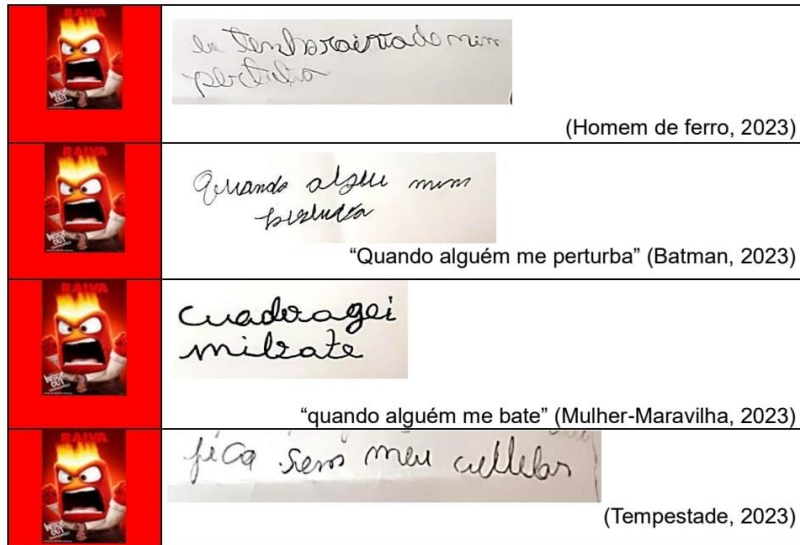 RAIVA
eu tenho raiva do min
pertuba
(Homem de ferro, 2023)
RAIVA
Quando algeu mim
pertuba
“Quando alguém me perturba” (Batman, 2023)
RAIVA
cuadoragei
mibate
“quando alguém me bate” (Mulher-Maravilha, 2023)
RAIVA
fica sem meu cellelar
(Tempestade, 2023)